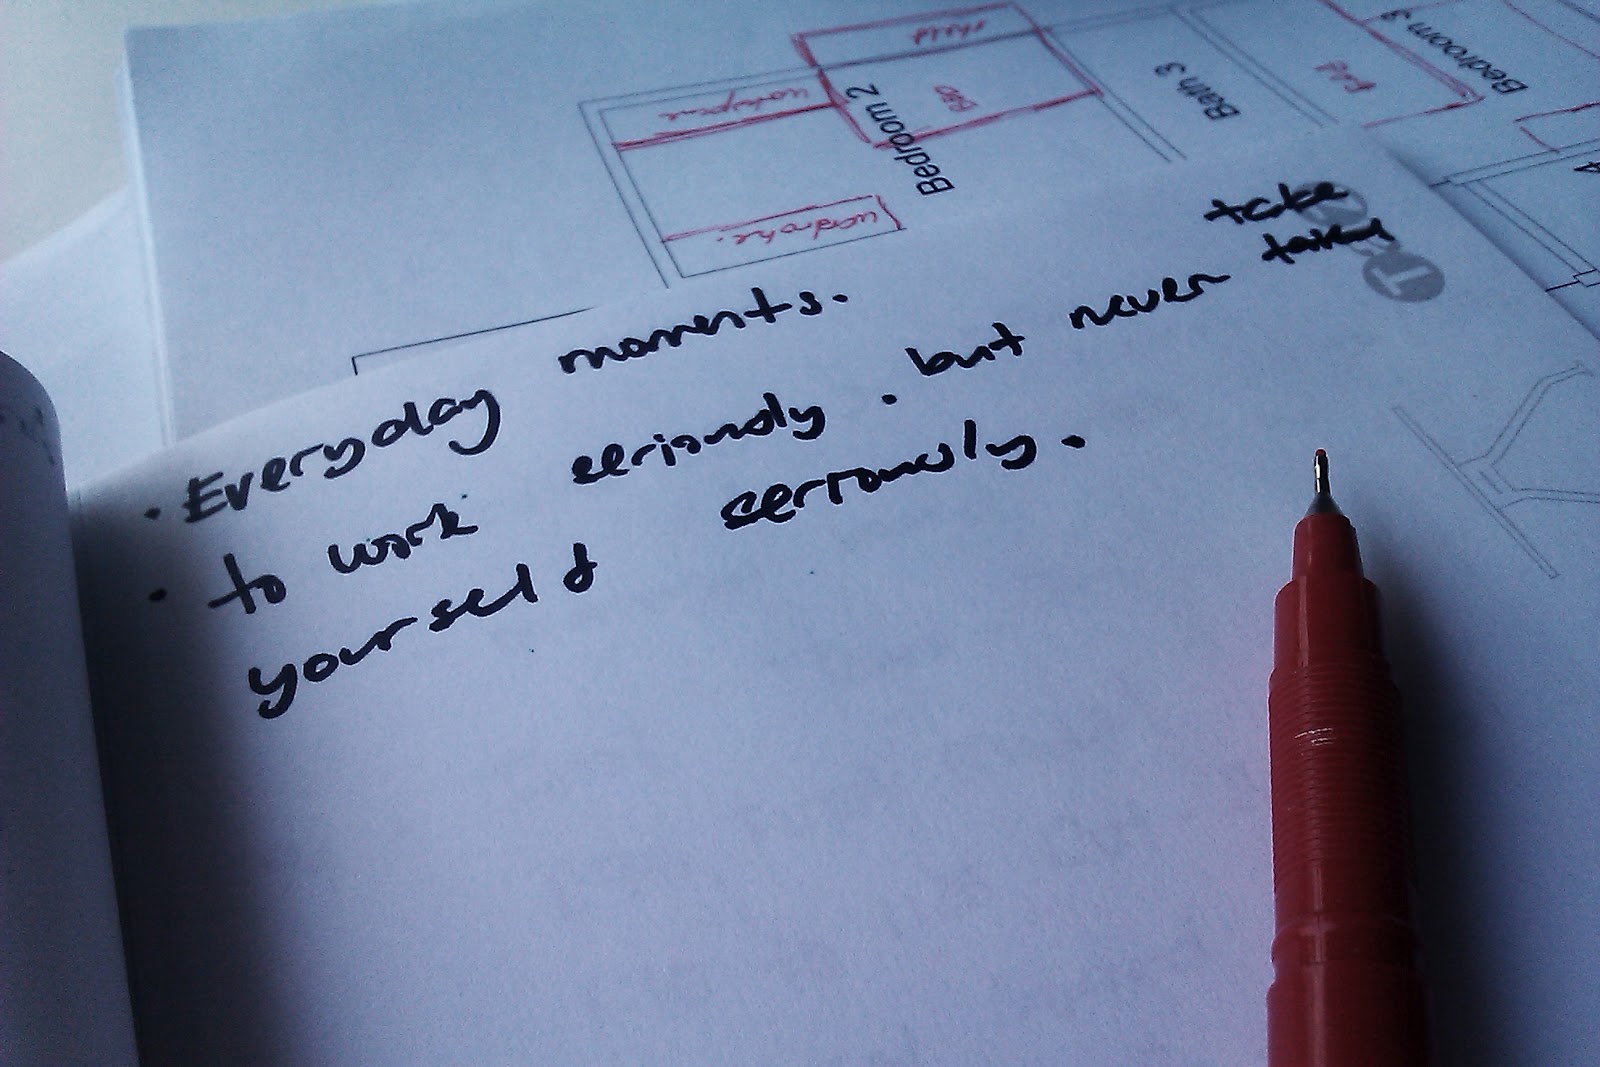 shelf
BED
Bedroom 2
wardrobe.
Bath 3
BED
Bedroom 3
4
· Everyday moments.
take
· to work seriously. but never taken
yourself seriously.